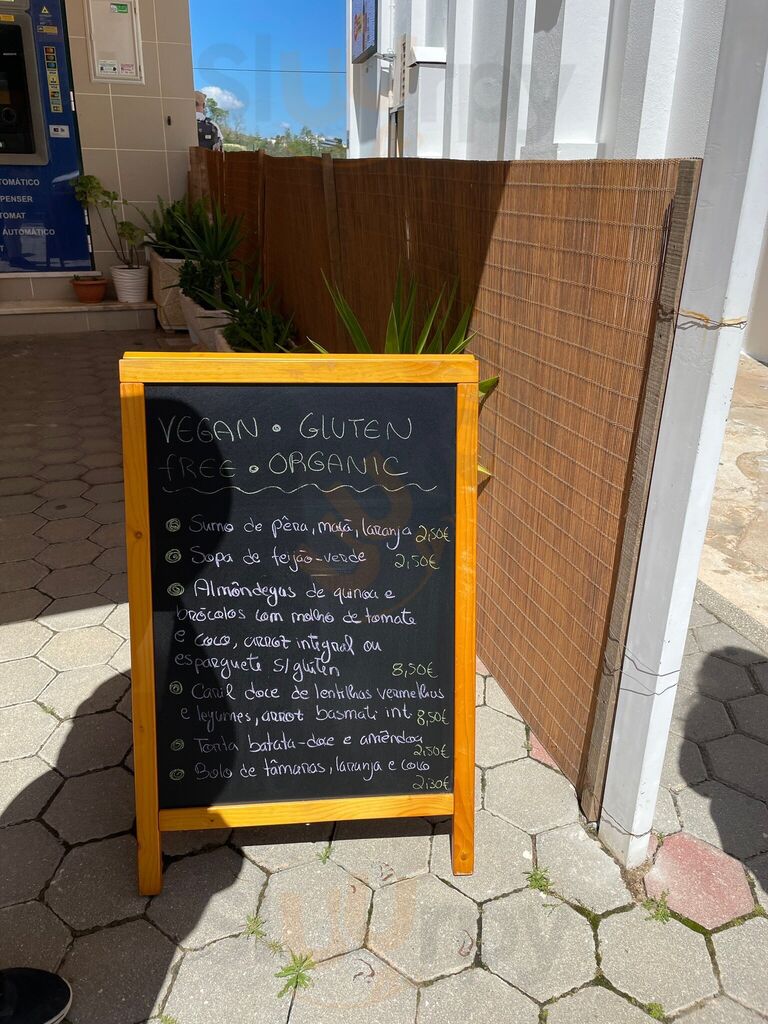 AUTOMÁTICO
PENSER
TOMAT
AUTOMÁTICO
VEGAN • GLUTEN
fREE • ORGANIC
Sumo de pêra, maçã, laranja 2,50€
Sopa de feijão-verde 2,50€
Almôndegas de quinoa e
brócolos com molho de tomate
e coco, arroz integral ou
esparguete s/glúten 8,50€
Caril doce de lentilhas vermelhas
e legumes, arroz basmati int. 8,50€
Torta batata-doce e amêndoa
2,50€
Bolo de tâmaras, laranja e coco
2,30€